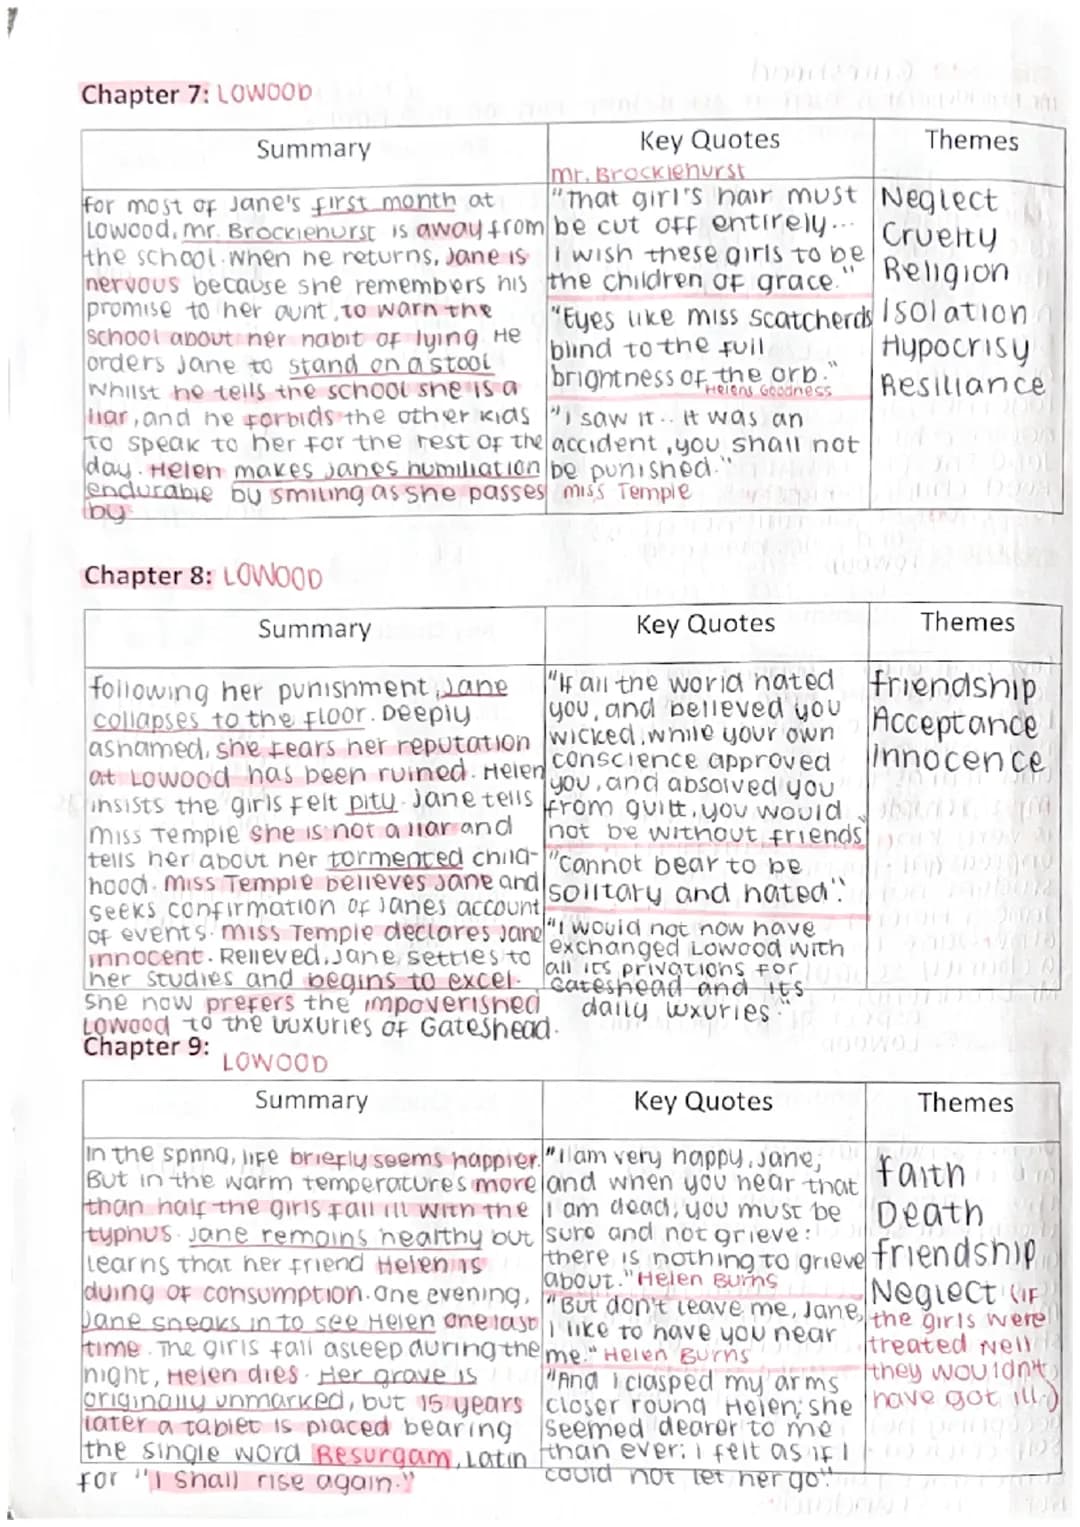 Chapter 7: LOWOOD
Summary
Key Quotes
Themes
mr. Brocklehurst
for most of Jane's first month at
Lowood, mr. Brocklehurst is away from
the school. When he returns, Jane is
nervous because she remembers his
promise to her aunt, to warn the
school about her habit of lying. He
orders Jane to stand on a stool
whilst he tells the school she is a
liar, and he forbids the other kids
to speak to her for the rest of the
day. Helen makes Janes humiliation
endurable by smiling as she passes
by
"That girl's hair must
be cut off entirely...
I wish these girls to be
the children of grace."
"Eyes like miss scatcherds
blind to the full
brightness of the orb."
Helens Goodness
"I saw it.. It was an
accident, you shall not
be punished."
miss Temple
Neglect
Cruelty
Religion
Isolation
Hypocrisy
Resiliance
Chapter 8: LOWOOD
Summary
Key Quotes
Themes
following her punishment, Jane
collapses to the floor. Deeply
ashamed, she fears her reputation
at Lowood has been ruined. Helen
insists the girls felt pity. Jane tells
miss Temple she is not a liar and
tells her about her tormented child-
hood. Miss Temple believes Jane and
seeks confirmation of Janes account
of events. Miss Temple declares Jane
innocent. Relieved, Jane settles to
her studies and begins to excel.
She now prefers the impoverished
Lowood to the luxuries of Gateshead.
"If all the world hated
you, and believed you
wicked, while your own
conscience approved
you, and absolved you
from guilt, you would
not be without friends
"cannot bear to be
solitary and hated."
"I would not now have
exchanged Lowood with
all its privations for
Gateshead and its
daily luxuries."
friendship
Acceptance
Innocence
Chapter 9:
LOWOOD
Summary
Key Quotes
Themes
In the spring, life briefly seems happier.
But in the warm temperatures more
than half the girls fall ill with the
typhus. Jane remains healthy but
learns that her friend Helen is
duing of consumption. One evening,
Jane sneaks in to see Helen one last
time. The girls fall asleep during the
night, Helen dies. Her grave is
originally unmarked, but 15 years
later a tablet is placed bearing
the single word Resurgam, Latin
for "I shall rise again."
"I am very happy, Jane,
and when you hear that
I am dead, you must be
sure and not grieve:
there is nothing to grieve
about." Helen Burns
"But don't leave me, Jane,
I like to have you near
me." Helen Burns
"And I clasped my arms
closer round Helen; she
seemed dearer to me
than ever: I felt as if I
could not let her go".
faith
Death
friendship
Neglect (if
the girls were
treated well
they wouldn't
have got ill.)